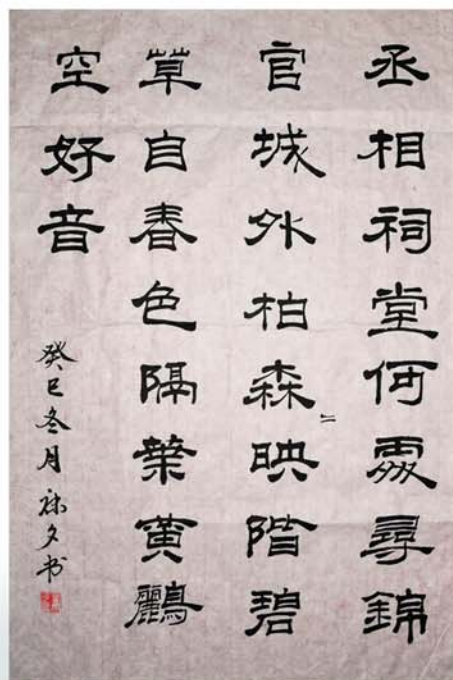 丞相祠堂何處尋錦
官城外柏森〻映階碧
草自春色隔葉黃鸝
空好音
癸巳冬月夕书